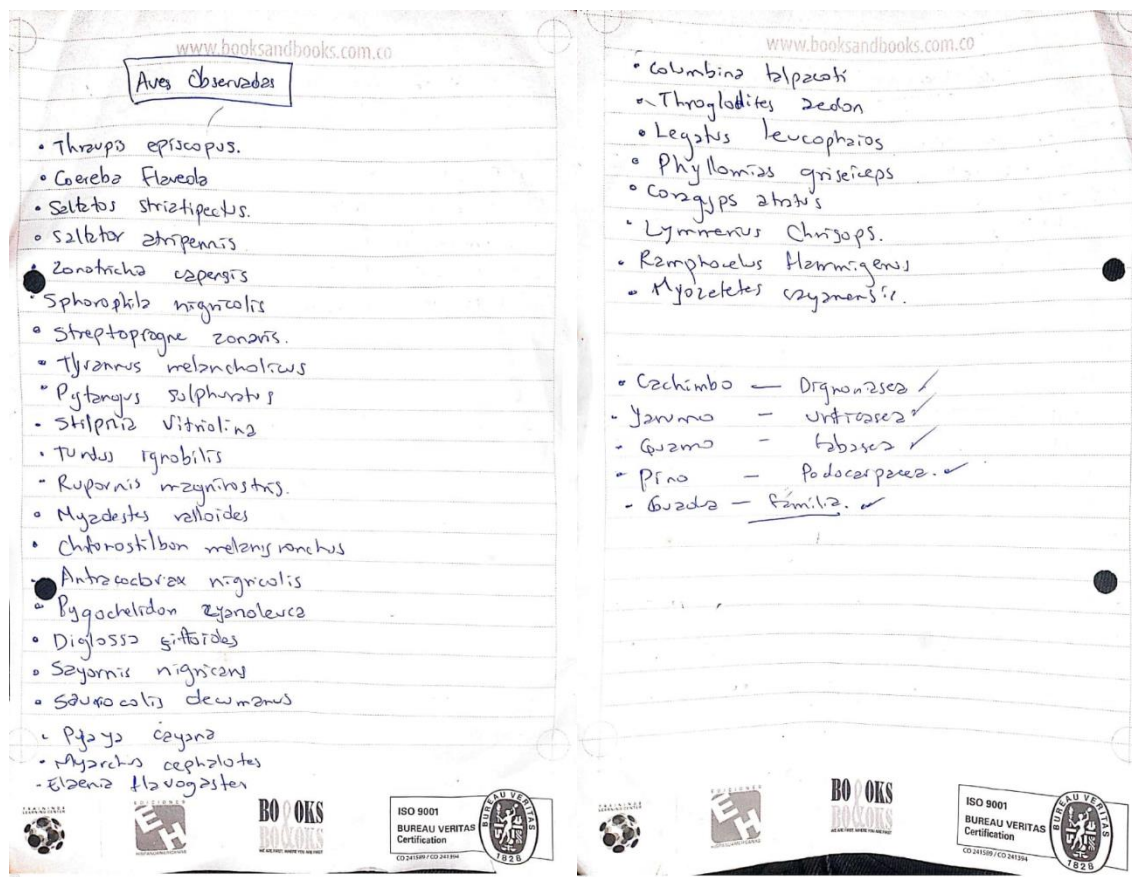 www.booksandbooks.com.co
Aves Observadas
• Thraupis episcopus.
• Coereba Flaveola
• Saltatos striatipectus.
• Saltator atripennis
• Zonotricha capensis
• Sphorophila nigricolis
• Streptoprogne zonaris.
• Tyrannus melancholicus
• Pytangus sulphuratus
• Stilpnia Vitriolina
• Turdus ignobilis
• Rupornis magnirostris.
• Myadestes ralloides
• Chlorostilbon melanisronchus
• Antracocorax nigricolis
• Pygochelidon cyanoleuca
• Diglossa sittoides
• Sayornis nigricans
• Saurocolis decumanus
• Pyaya cayana
• Myarchus cephalotes
- Elaenia flavogaster
TRAINING &
LEARNING CENTER
EDICIONES
EH
HISPANOAMERICANAS
BOOKS
BO&OKS
WE ARE FIRST, WHERE YOU ARE FIRST
ISO 9001
BUREAU VERITAS
Certification
CO 241589 / CO 241394
BUREAU VERITAS
1828
www.booksandbooks.com.co
• Columbina talpacoti
• Throglodites aedon
• Legatus leucophaios
• Phyllomias griseiceps
• Coragyps atratus
• Lymnerius Chrisops.
• Ramphocelus flammigerus
• Myozetetes cayanensis.
• Cachimbo — Bignonasea ✓
- Yarumo - urticasea ✓
- Guamo - fabasea ✓
- Pino - Podocarpacea. ✓
- Guadua — familia. ✓
EH
BOOKS
BO&OKS
WE ARE FIRST, WHERE YOU ARE FIRST
ISO 9001
BUREAU VERITAS
Certification
CO 241589 / CO 241394
BUREAU VERITAS
1828